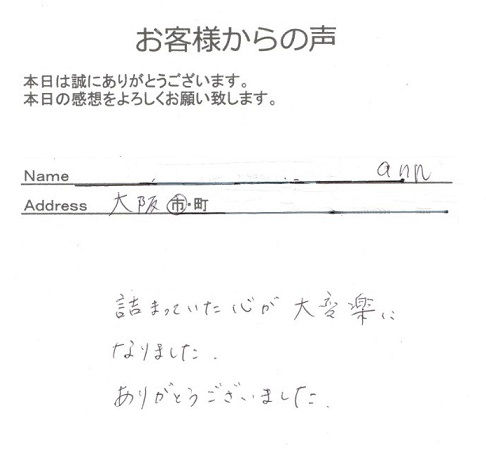 お客様からの声
本日は誠にありがとうございます。
本日の感想をよろしくお願い致します。
Name ann
Address 大阪 市・町
詰まっていた心が大変楽に
なりました.
ありがとうございました.